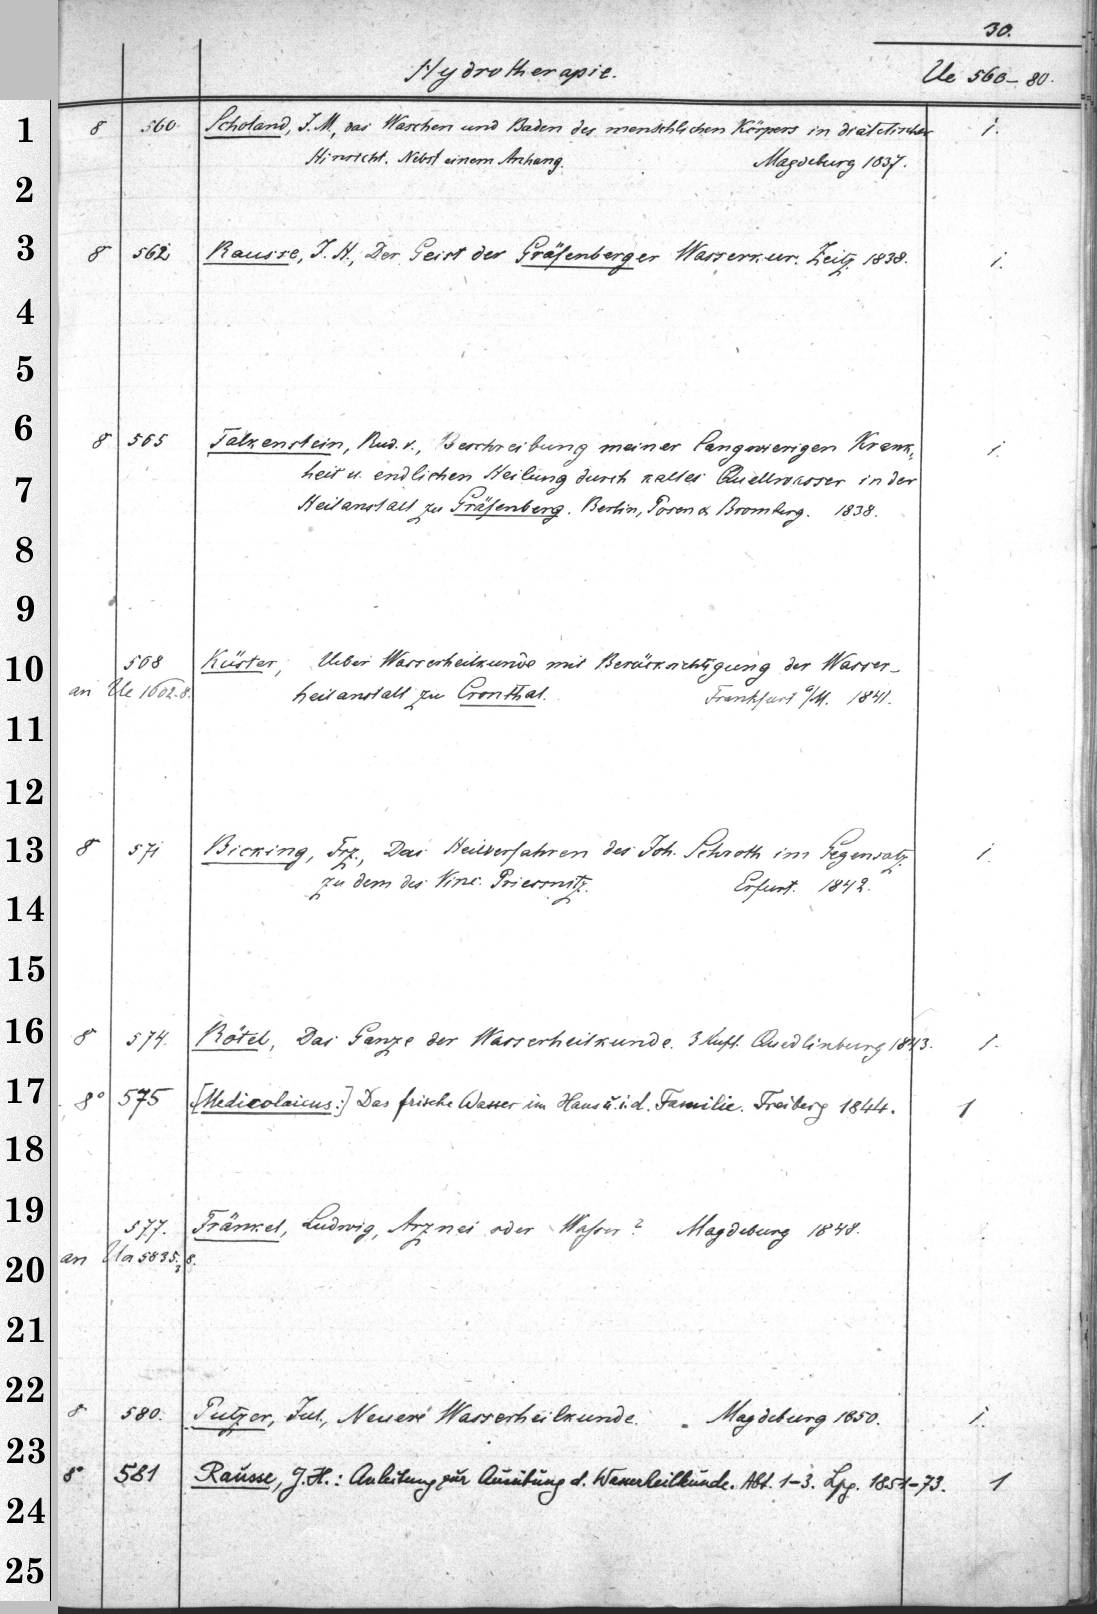 30.
Hydrotherapie. Ue 560-80.
1 8 560. Scholand, J. M, das Waschen und Baden des menschlichen Körpers in diätetischer 1.
Hinsicht. Nebst einem Anhang. Magdeburg 1837.
2
3 8 562 Rausse, J. H., Der Geist der Gräfenberger Wasserkur. Zeitz. 1838. 1.
4
5
6 8 565 Falkenstein, Rud. v., Beschreibung meiner langwierigen Krank- 1.
7 heit u. endlichen Heilung durch kaltes Quellwasser in der
Heilanstalt zu Gräfenberg. Berlin, Posen & Bromberg. 1838.
8
9
10 568 Küster, Ueber Wasserheilkunde mit Berücksichtigung der Wasser-
an Ue 1602.8. heilanstalt zu Cronthal. Frankfurt a/M. 1841.
11
12
13 8 571 Bicking, Frz., Das Heilverfahren des Joh. Schroth im Gegensatz 1.
14 zu dem des Vinc. Priessnitz. Erfurt. 1842.
15
16 8 574. Rötel, Das Ganze der Wasserheilkunde. 3 Aufl. Quedlinburg 1843. 1.
17 8° 575 [Medicolaicus:] Das frische Wasser im Haus u. i. d. Familie. Freiberg 1844. 1
18
19 577. Fränkel, Ludwig, Arznei oder Wasser? Magdeburg 1848.
20 an Ua 5835. 8.
3
21
22 8 580. Putzer, Jul., Neuere Wasserheilkunde. Magdeburg 1850. 1.
23 8° 581 Rausse, J. H.: Anleitung zur Ausübung d. Wasserheilkunde. Abt. 1-3. Lpg. 1851-73. 1
24
25